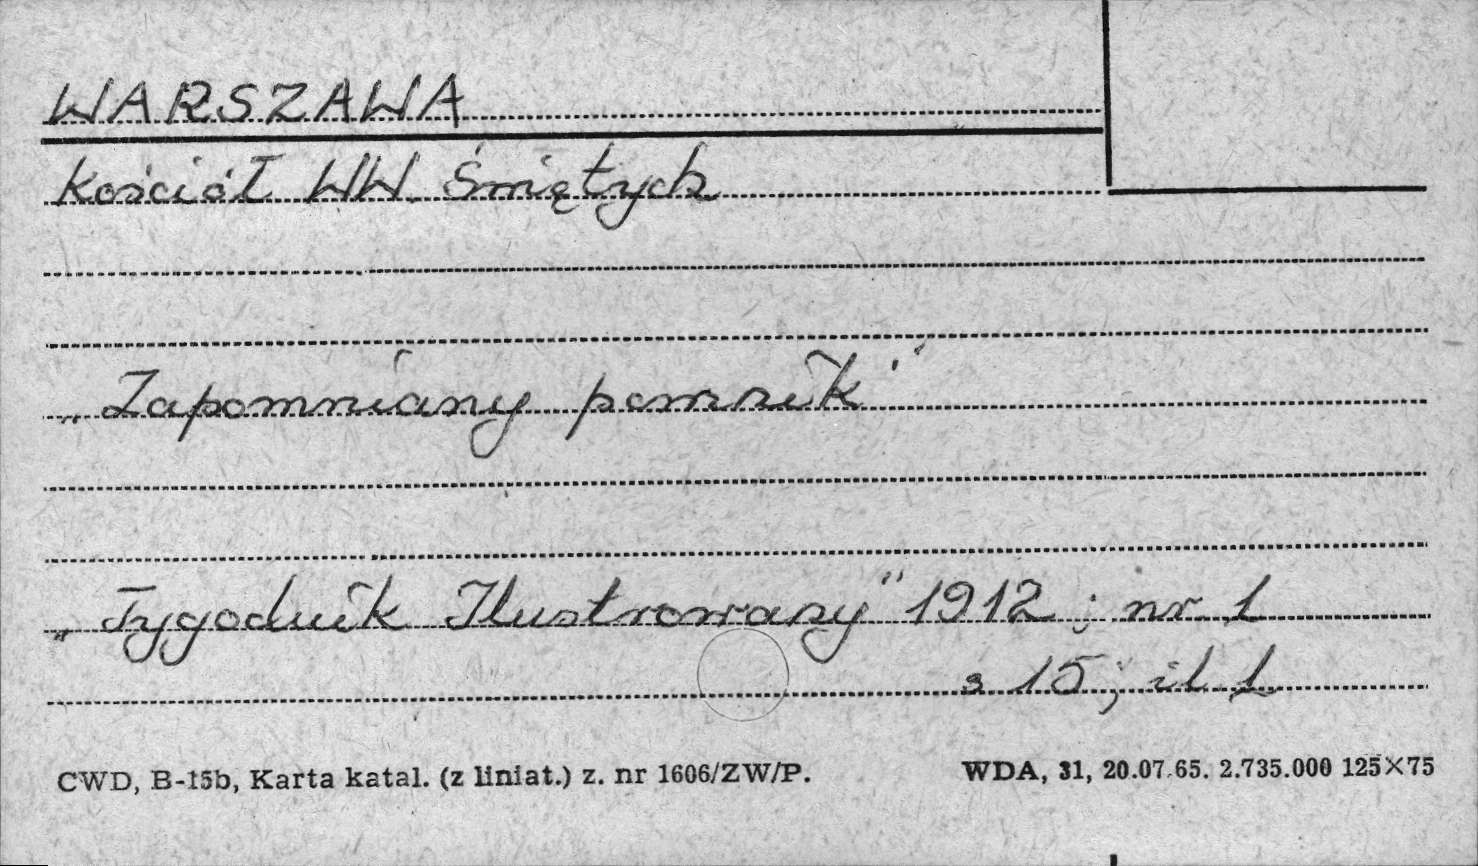 WARSZAWA
Kościół WW. Świętych
„Zapomniany pomnik"
„Tygodnik Ilustrowany" 1912; nr 1
s 15; il 1
CWD, B-15b, Karta katal. (z liniat.) z. nr 1606/ZW/P. WDA, 31, 20.07.65. 2.735.000 125×75